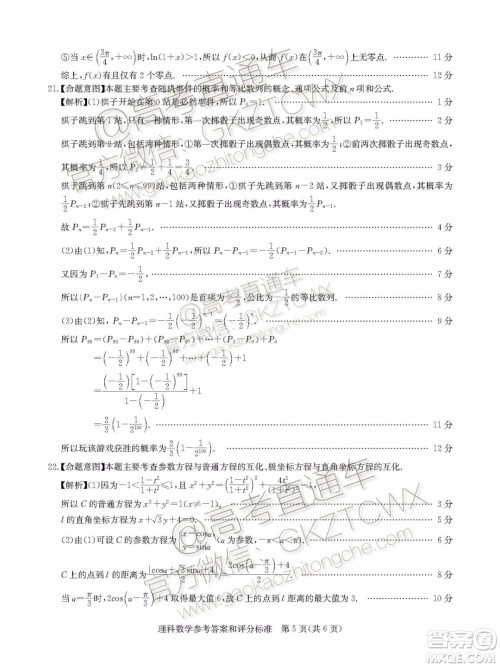 ⑤当 x∈(3π/4,+∞)时,ln(1+x)>1,所以 f(x)<0,从而 f(x)在(3π/4,+∞)上无零点. 11 分
综上,f(x)有且仅有 2 个零点. 12 分
21.【命题意图】本题主要考查随机事件的概率和等比数列的概念、通项公式及前 n 项和公式.
【解析】(1)棋子开始在第 0 站是必然事件,所以 P₀=1. 1 分
棋子跳到第 1 站,只有一种情形,第一次掷骰子出现奇数点,其概率为 1/2,所以 P₁=1/2. 2 分
棋子跳到第 2 站,
其概率为 1/4,所以 P₂=1/2+1/4=3/4. 3 分
棋子跳到第 n(2≤n≤99)站,包括两种情形,①棋子先跳到第 n-2 站,又掷骰子出现偶数点,其概率为
1/2 Pₙ₋₂;②棋子先跳到第 n-1 站,又掷骰子出现奇数点,其概率为 1/2 Pₙ₋₁.
故 Pₙ=1/2 Pₙ₋₂+1/2 Pₙ₋₁. 4 分
(2)由(1)知,Pₙ=1/2 Pₙ₋₂+1/2 Pₙ₋₁,所以 6 分
又因为 P₁-P₀=-1/2, 7 分
所以{Pₙ-Pₙ₋₁}(n=1,2,…,100)是首项为-1/2,公比为-1/2 的等比数列. 8 分
(3)由(2)知,Pₙ-Pₙ₋₁=-1/2(-1/2)ⁿ⁻¹=(-1/2)ⁿ. 9 分
所以 P₉₉=(P₉₉-P₉₈)+(P₉₈-P₉₇)+…+(P₁-P₀)+P₀
=(-1/2)⁹⁹+(-1/2)⁹⁸+…+(-1/2)+1
=(-1/2)[1-(-1/2)⁹⁹]/(1-(-1/2))+1
=2/3(1-1/2¹⁰⁰). 11 分
所以玩该游戏获胜的概率为 2/3(1-1/2¹⁰⁰). 12 分
22.【命题意图】本题主要考查参数方程与普通方程的互化、极坐标方程与直角坐标方程的互化.
【解析】(1)因为-1<(1-t²)/(1+t²)≤1,
所以 C 的普通方程为 x²+y²=1(x≠-1). 3 分
l 的直角坐标方程为 x+√3y+4=0. 5 分
(2)由(1)可设 C 的参数方程为{x=cosα, y=sinα(α 为参数,-π<α<π). 6 分
C 上的点到 l 的距离为 |cosα+√3sinα+4|/2=(2cos(α-π/3)+4)/2. 8 分
当 α=π/3 时,2cos(α-π/3)+4 取得最大值 6,故 C 上的点到 l 距离的最大值为 3. 10 分
理科数学参考答案和评分标准 第 5 页(共 6 页)
@高考直通车
官方微信:GKZTCWX
www.gaokaozhitongche.com